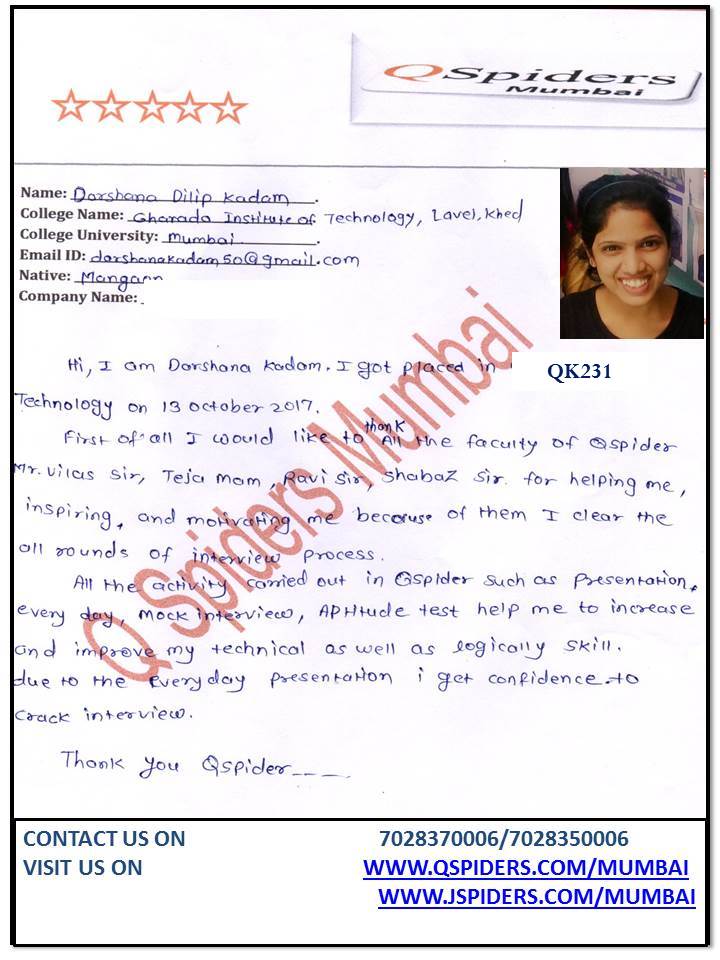 QSpiders
Mumbai
Name: Darshana Dilip Kadam.
College Name: Gharada Institute of Technology, Lavel, Khed
College University: Mumbai.
Email ID: darshanakadam50@gmail.com
Native: Mangaon
Company Name:
Hi, I am Darshana Kadam. I got placed in QK231
Technology on 13 October 2017.
First of all I would like to thank All the faculty of Qspider
Mr. Vilas Sir, Teja Mam, Ravi Sir, Shabaz Sir. for helping me,
inspiring, and motivating me because of them I clear the
all rounds of interview process.
All the activity carried out in Qspider such as Presentation,
every day, mock interview, Aptitude test help me to increase
and improve my technical as well as logically skill.
due to the everyday presentation i get confidence to
crack interview.
Thank you Qspider____.
Q Spiders Mumbai
CONTACT US ON 7028370006/7028350006
VISIT US ON WWW.QSPIDERS.COM/MUMBAI
WWW.JSPIDERS.COM/MUMBAI